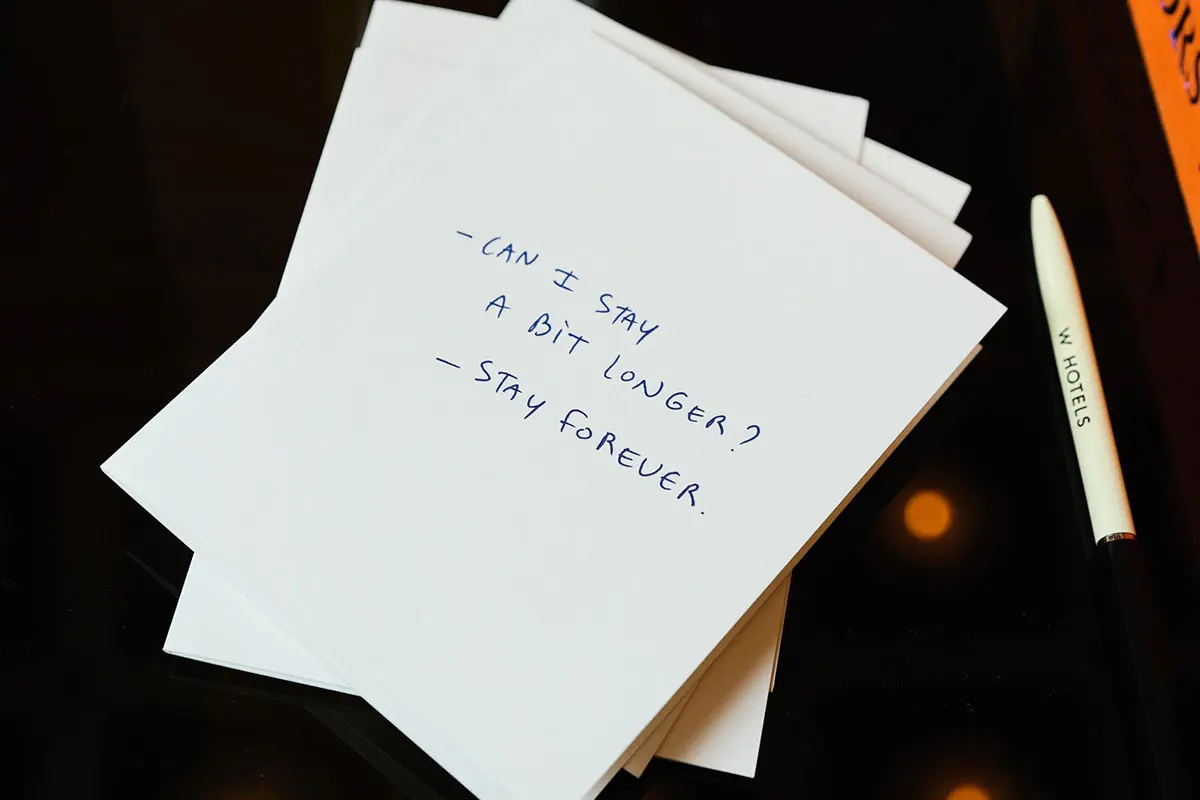 - CAN I STAY
A BIT LONGER?
- STAY FOREVER.
W HOTELS